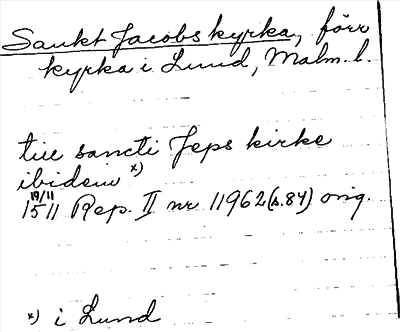 Sankt Jacobs kyrka, förr
kyrka i Lund, Malm. l.
till sancti Jeps kirke
ibidem x)
19/11 1511 Rep. II nr 11962 (s. 84) orig.
x) i Lund